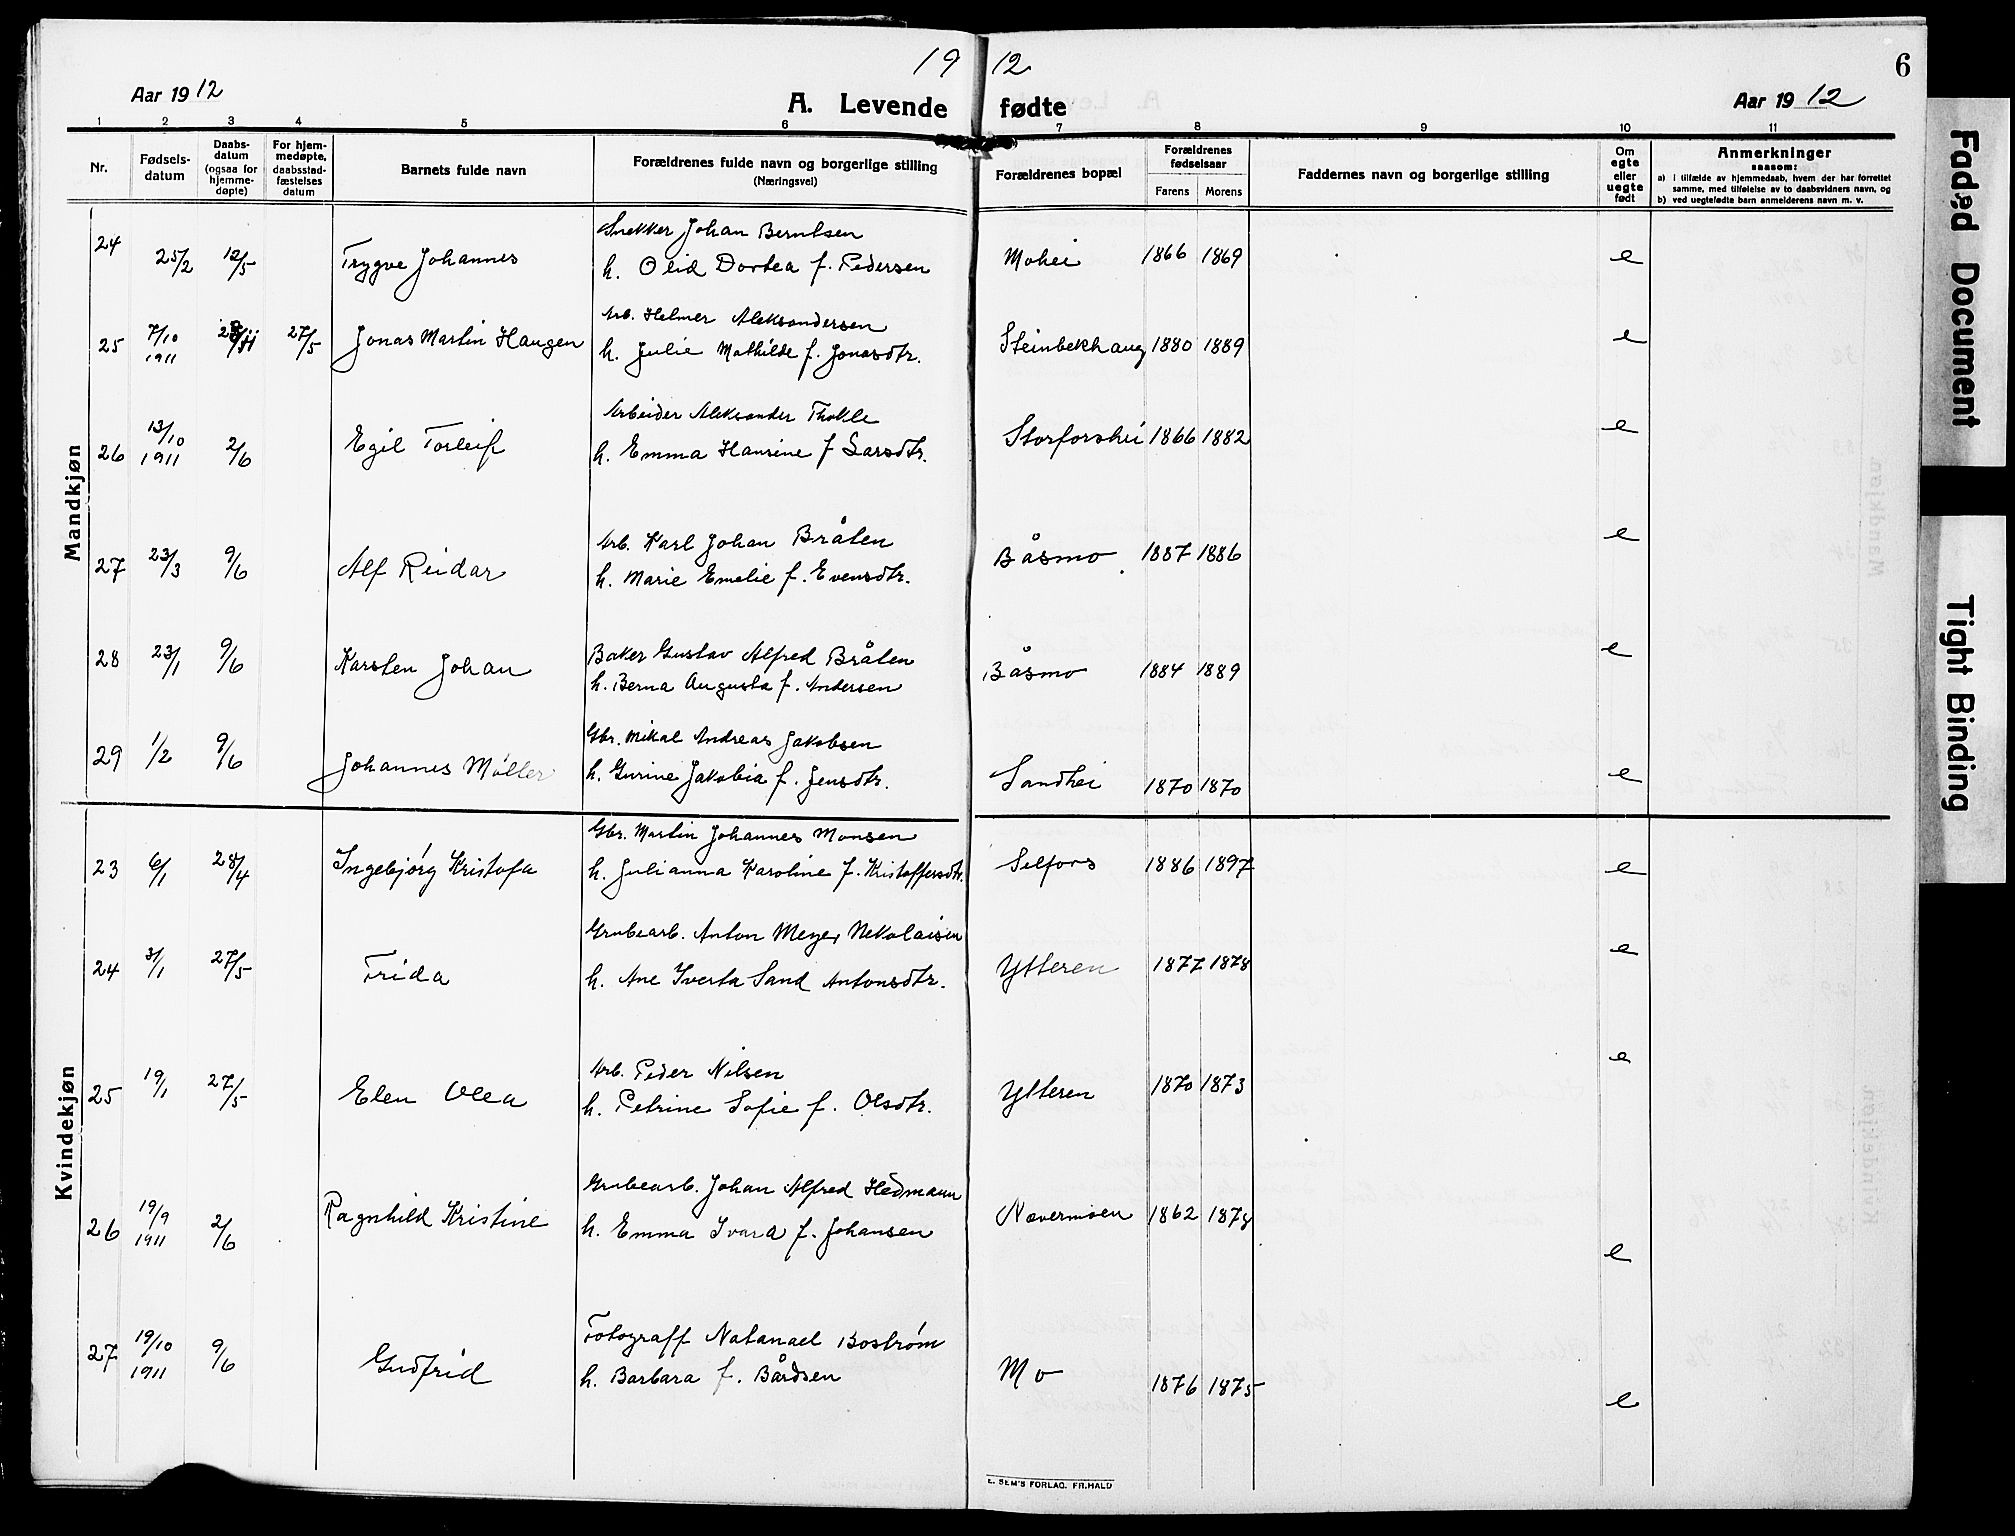 19 12
6
Aar 1912
A. Levende fødte
Aar 1912
1 2 3 4 5 6 7 8 9 10 11
Nr.
Fødselsdatum
Daabsdatum (ogsaa for hjemmedøpte)
For hjemmedøpte, daabsstadfæstelses datum
Barnets fulde navn
Forældrenes fulde navn og borgerlige stilling
(Næringsvei)
Forældrenes bopæl
Forældrenes fødselsaar
Farens Morens
Faddernes navn og borgerlige stilling
Om egte eller uegte født
Anmerkninger
saasom:
a) i tilfælde av hjemmedaab, hvem der har forrettet
samme, med tilføielse av to daabsvidners navn, og
b) ved uegtefødte barn anmelderens navn m. v.
Mandkjøn
24 25/2 12/5 Trygve Johannes Snekker Johan Berntsen
h. Olid Dortea f. Pedersen Mohei 1866 1869 e
25 7/10 1911 27/5 Jonas Martin Haugen Arb. Helmer Aleksandersen
h. Julie Mathilde f. Jonasdtr. Steinbekhaug 1880 1889 e
26 13/10 1911 2/6 Egil Torleif Arbeider Aleksander Thokle
h. Emma Hansine f Larsdtr. Storforshei 1866 1882 e
27 23/3 9/6 Alf Reidar Arb. Karl Johan Bråten
h. Marie Emelie f. Evensdtr. Båsmo 1887 1886 e
28 23/1 9/6 Karsten Johan Baker Gustav Alfred Bråten
h. Berna Augusta f. Andersen Båsmo 1884 1889 e
29 1/2 9/6 Johannes Møller Gbr. Mikal Andreas Jakobsen
h. Gurine Jakobia f. Jensdtr. Sandhei 1870 1870 e
Kvindekjøn
23 6/1 28/4 Ingebjørg Kristofa Gbr. Martin Johannes Monsen
h. Julianna Karoline f. Kristoffersdtr. Selfors 1886 1897 e
24 3/1 27/5 Frida Grubearb. Anton Meyer Nekolaisen
h. Ane Iverta Sand Antonsdtr. Ytteren 1877 1878 e
25 19/1 27/5 Elen Olea Arb. Peder Nilsen
h. Petrine Sofie f. Olsdtr. Ytteren 1870 1873 e
26 19/9 1911 2/6 Ragnhild Kristine Grubearb. Johan Alfred Hedmann
h. Emma Ivara f. Johansen Nævermoen 1862 1878 e
27 19/10 1911 9/6 Gudfrid Fotograff Natanael Bostrøm
h. Barbara f. Bårdsen Mo 1876 1875 e
E. SEM'S FORLAG. FR.HALD
Faded Document
Tight Binding